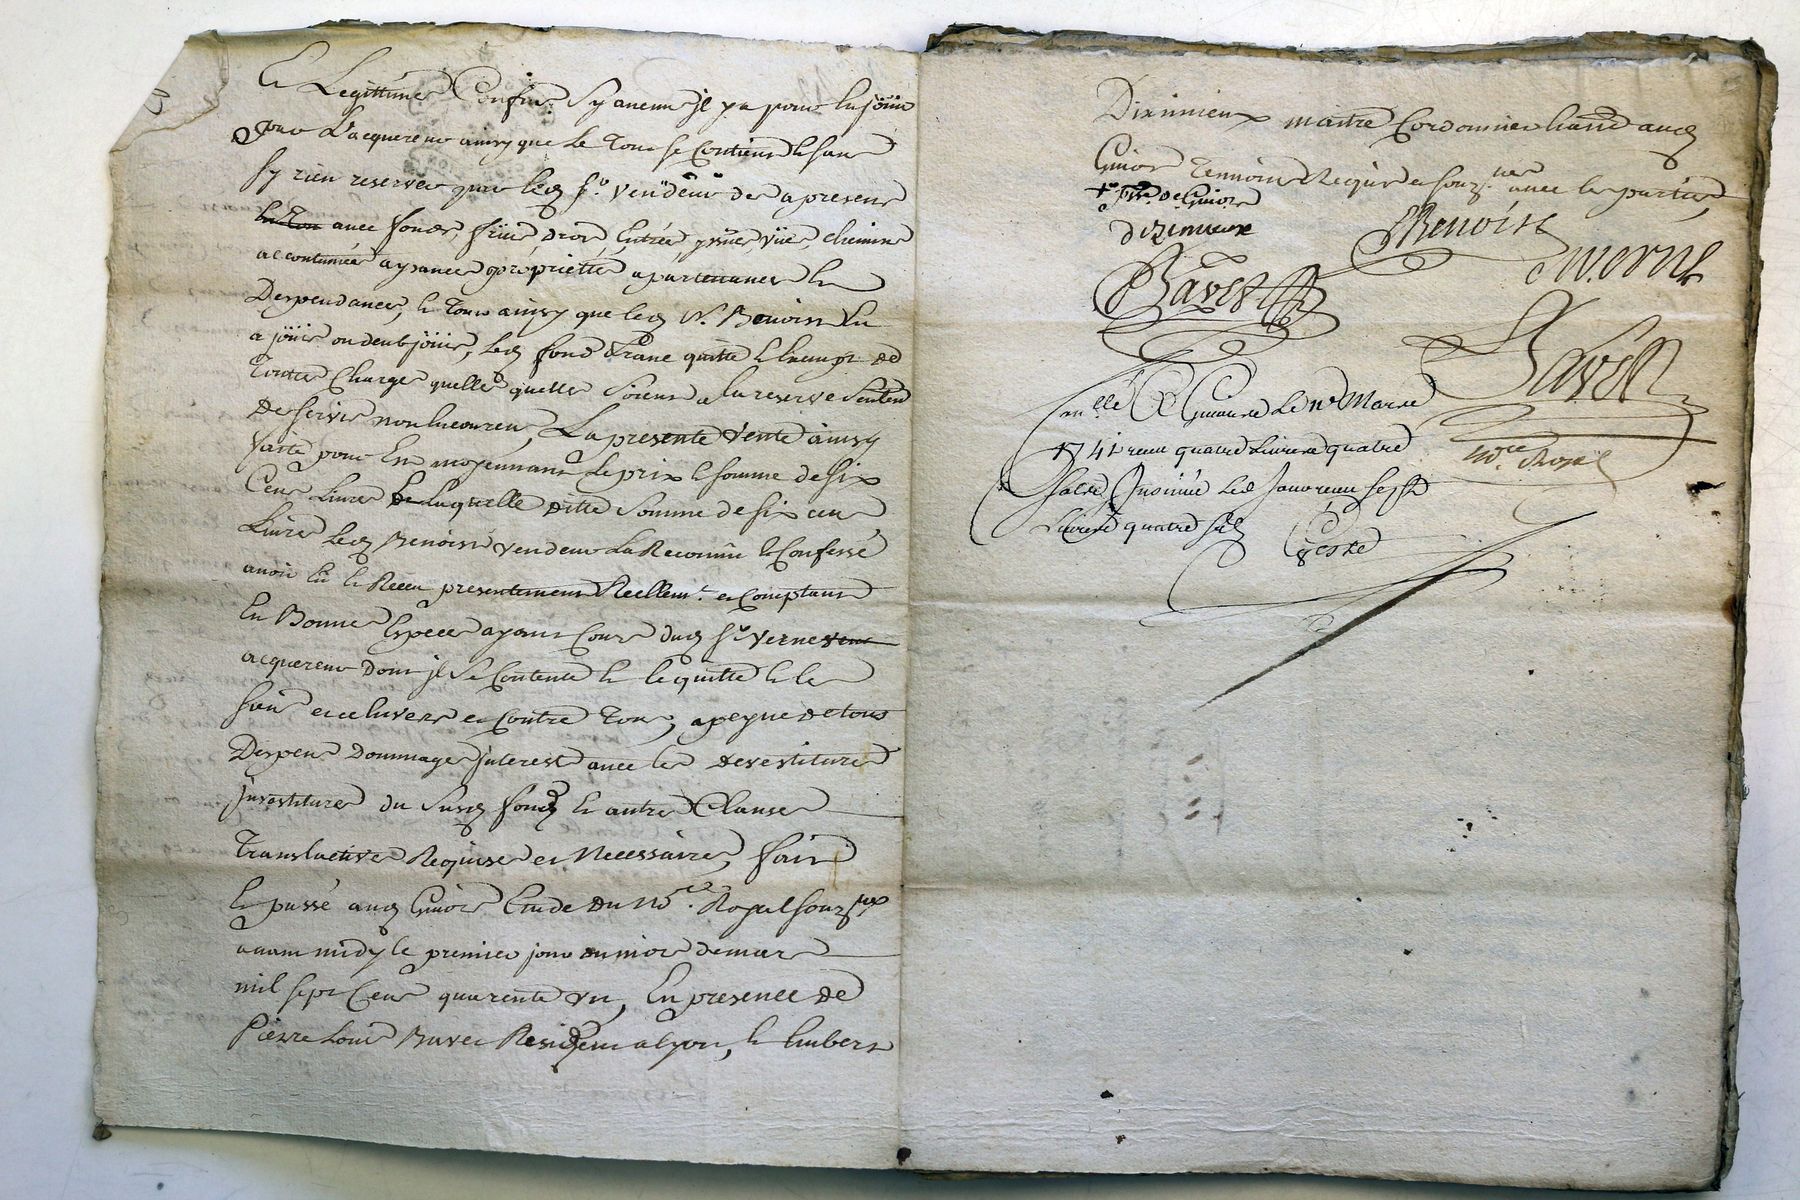 Et Legittimes Confins Sy aucuns jl ya pour En joüir
pour L'acquereur ainsy que Le Tout se Contient Et sans
sy rien reserver par led sr. Vendeur des a present
avec fonds, fruits droits Entrées yssües vües chemins
accoutumées aysances proprietté apartenances Et
Despendances, le tout ainsy que led Sr. Benoist En
a joüis ou deub joüir, led fond franc quitte Et Exempt de
Toutes Charges quelles quelles Soient a la reserve
de servis non Encourrens, La presente Vente ainsy
faitte pour Et moyennant Le prix Et somme de six
Cens Livres De Laquelle ditte Somme de six cens
Livres Led Benoist vendeur La Reconnu Et Confessé
avoir Eü Et Receu presentement Reellemt. et Comptant
En Bonnes Especes ayant Cours dud sr Verne
acquereur Dont jl Se Contente Et le quitte Et le
fair envers et Contre Tous, a peyne de tous
Despens Dommages jnterest avec les devestitures
jnvestitures du Susd fonds Et autres Clauses
Translatives Requises et Necessaires, fait
Et passé aud Givors Etude du Nore. Royal souzsigné
avant midy le premier jour du mois de mars
mil sept Cens quarente un, En presence de
Pierre Louis Bavet Resident a Lyon, Et Imbert
Diximieux maitre Cordonnier aud
Givors Temoins Requis et souz.nes avec les parties
de Givors
dizimieux
Benoist
Verne
Bavet
Bavet
Nore Royal
Conllé a Givors Le 11e Mars
1741 receu quatre Livres quatre
sols Insinué led Jour receu sept
Livres quatre sols